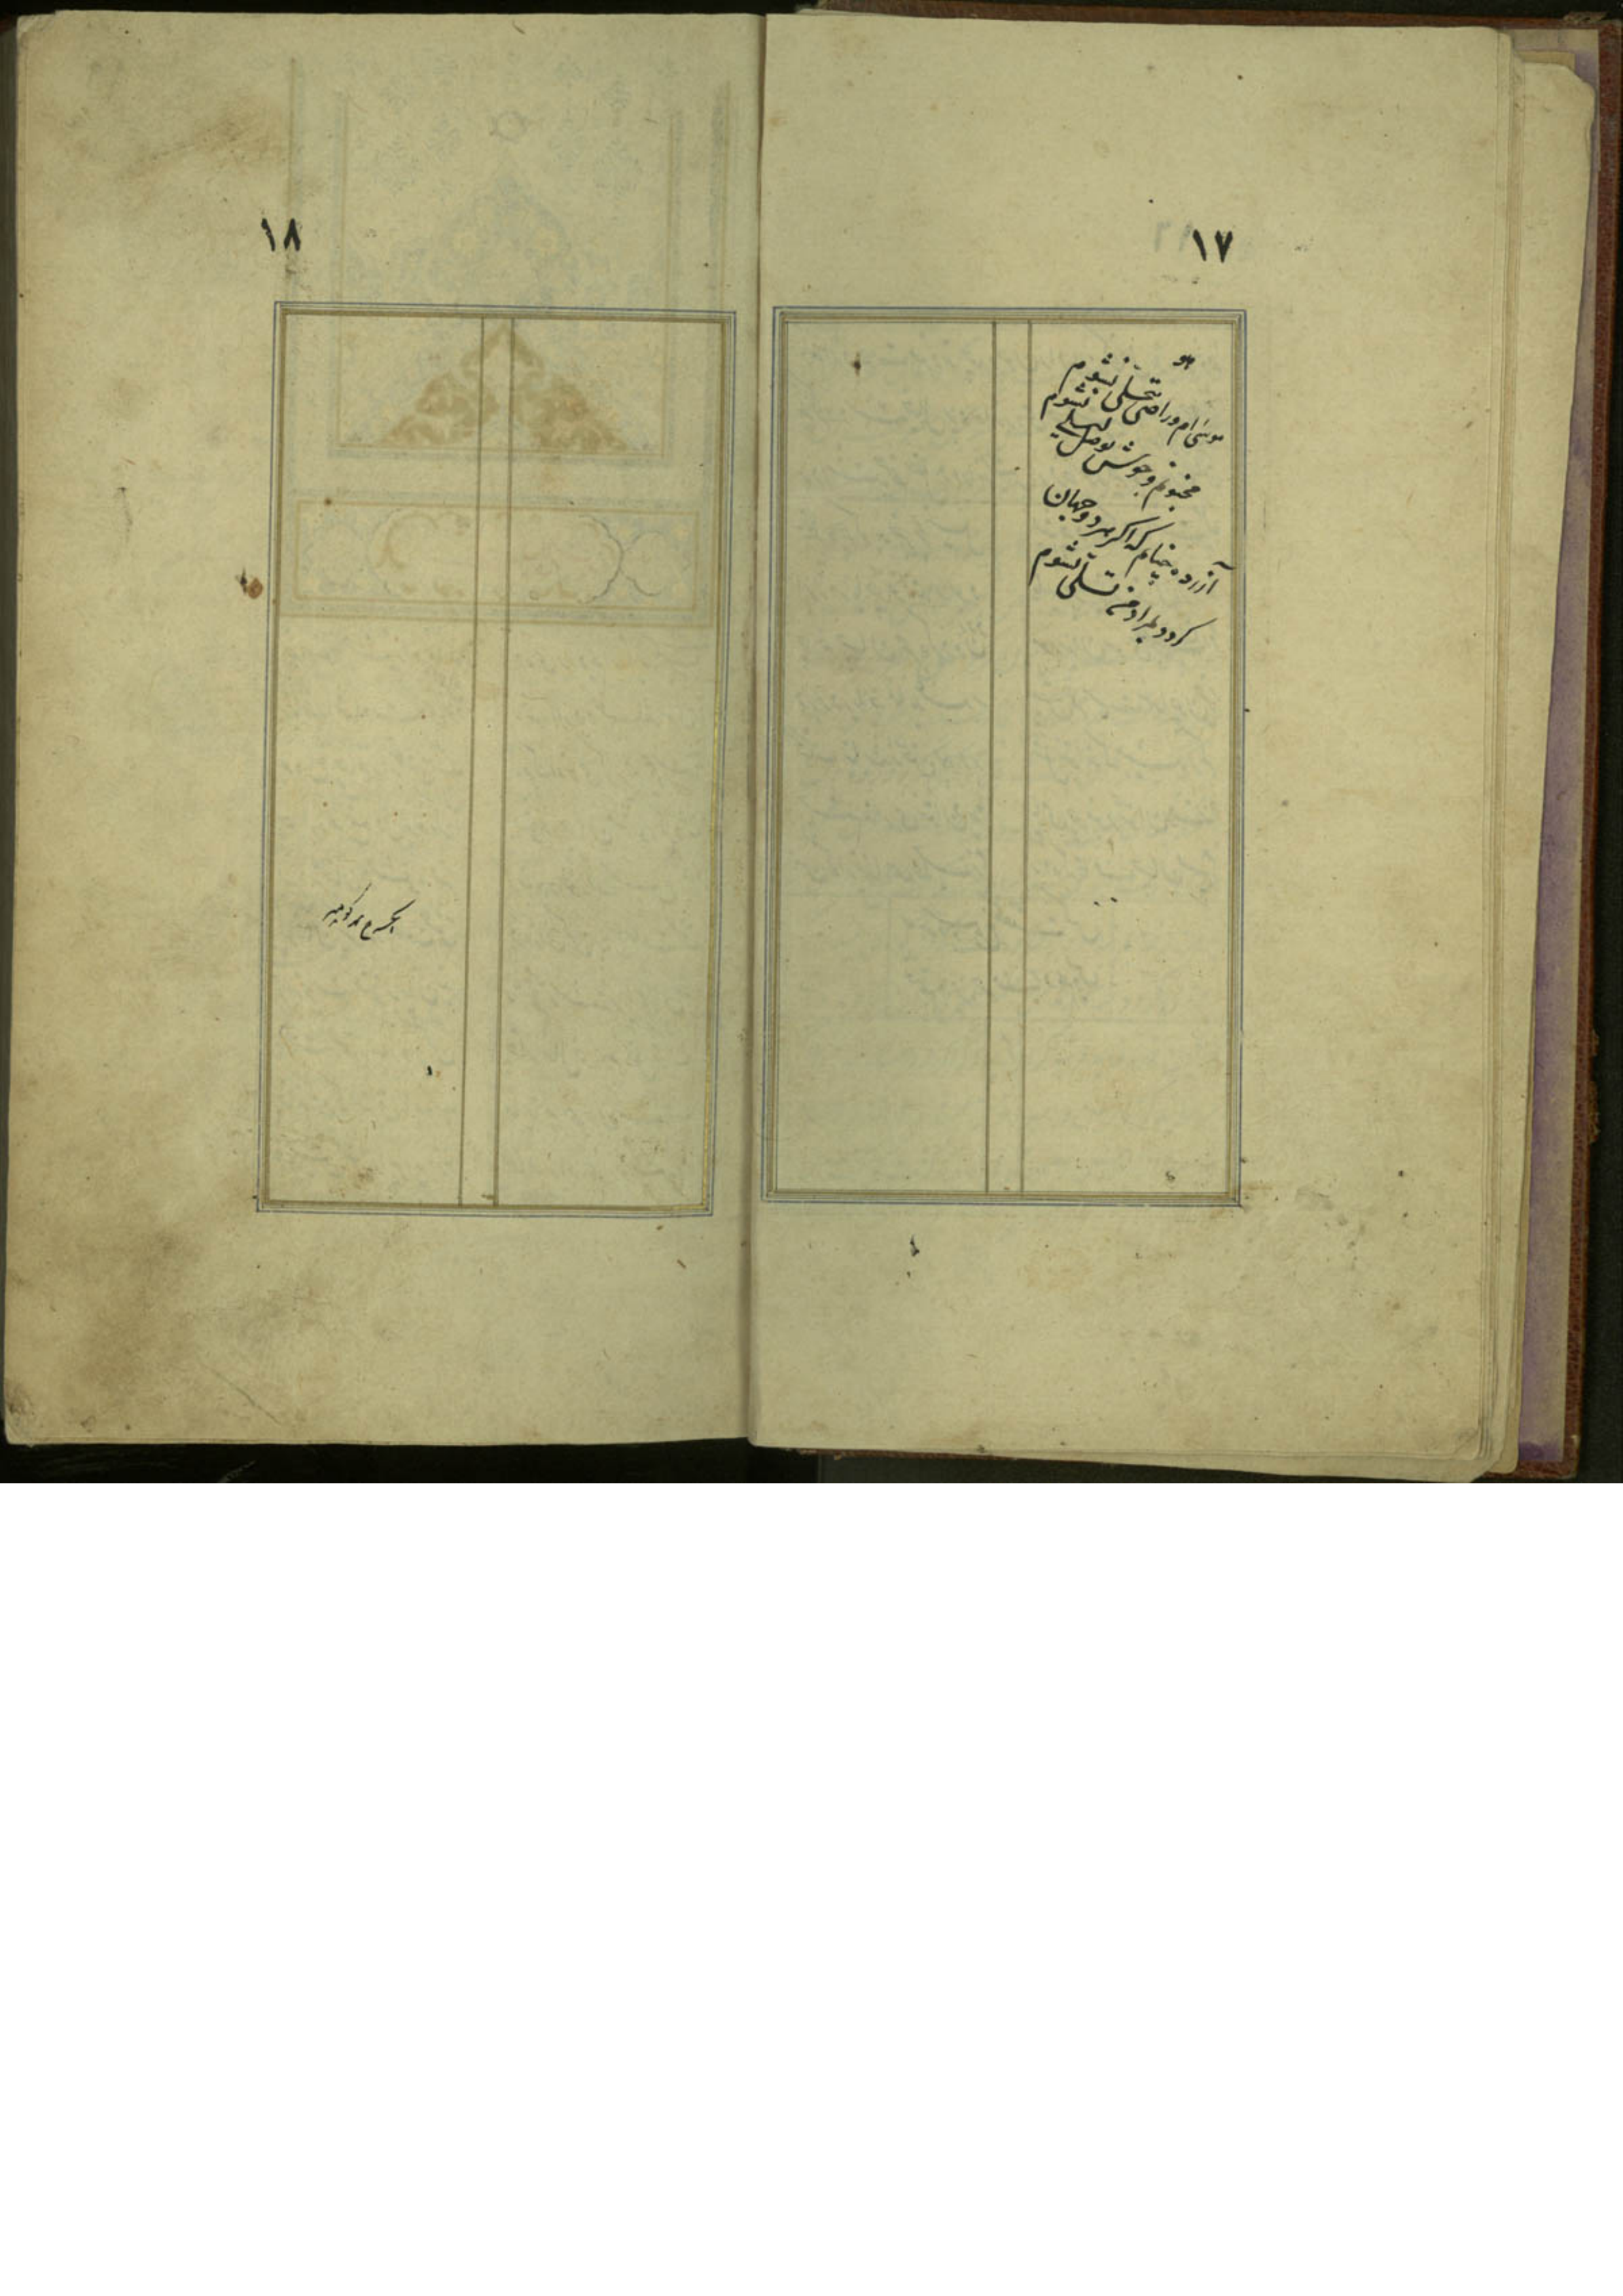 ۱۷
هو
موسی ام و راضی بتجلی نشوم
مجنونم و خوش بوصل لیلی نشوم
آزرده چنانم که اگر هر دو جهان
گردد بمراد من تسلی نشوم
۱۸